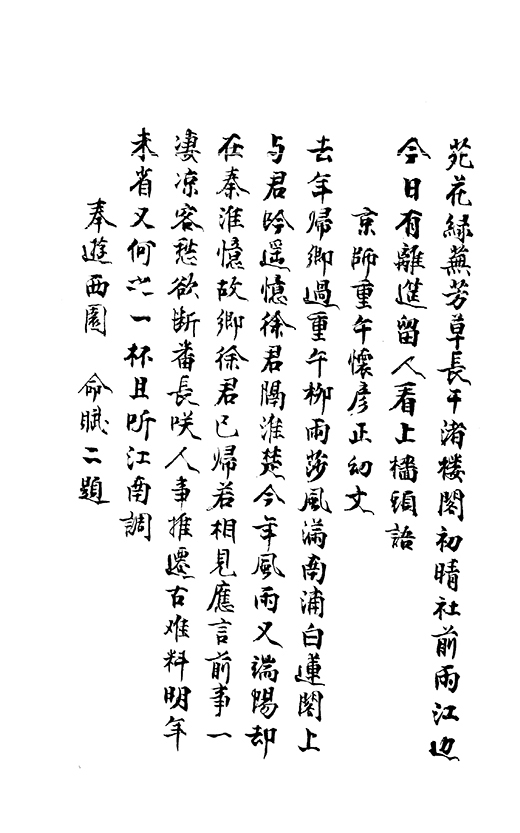 苑花緑蕪芳草長干渚楼閣初晴社前雨江边
今日有離筵留人看上檣頭語
京師重午懷彦正幼文
去年帰鄉過重午柳雨莎風滿南浦白蓮閣上
与君吟遥憶徐君隔淮楚今年風雨又端陽却
在秦淮憶故鄉徐君已帰若相見應言前事一
凄凉客愁欲断番長咲人事推遷古难料明年
未省又何一杯且听江南調
奉遊西園 命賦二題